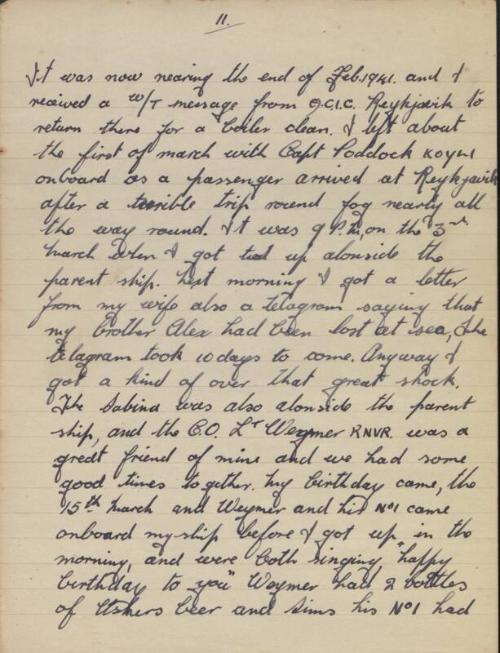 11.
It was now nearing the end of Feb.1941. and I
received a W/T message from Reykjavik to
return there for a boiler clean. I left about
the first of march with Capt Poddock
onboard as a passenger arrived at Reykjavik
after a terrible trip round fog nearly all
the way round. It was 9 P.M. on the 3rd
march when I got tied up alonside the
parent ship. Next morning I got a letter
from my wife also a telagram saying that
my brother Alex had been lost at sea, the
telagram took 10 days to come. Anyway I
got a kind of over that great shock.
The Sabina was also alonside the parent
ship, and the C.O. Lt Weymer RNVR. was a
great friend of mine and we had some
good times together. My birthday came, the
15th march and Weymer and his No1 came
onboard my ship before I got up in the
morning, and were both singing "happy
birthday to you" Weymer had 2 bottles
of Ushers beer and Sims his No1 had